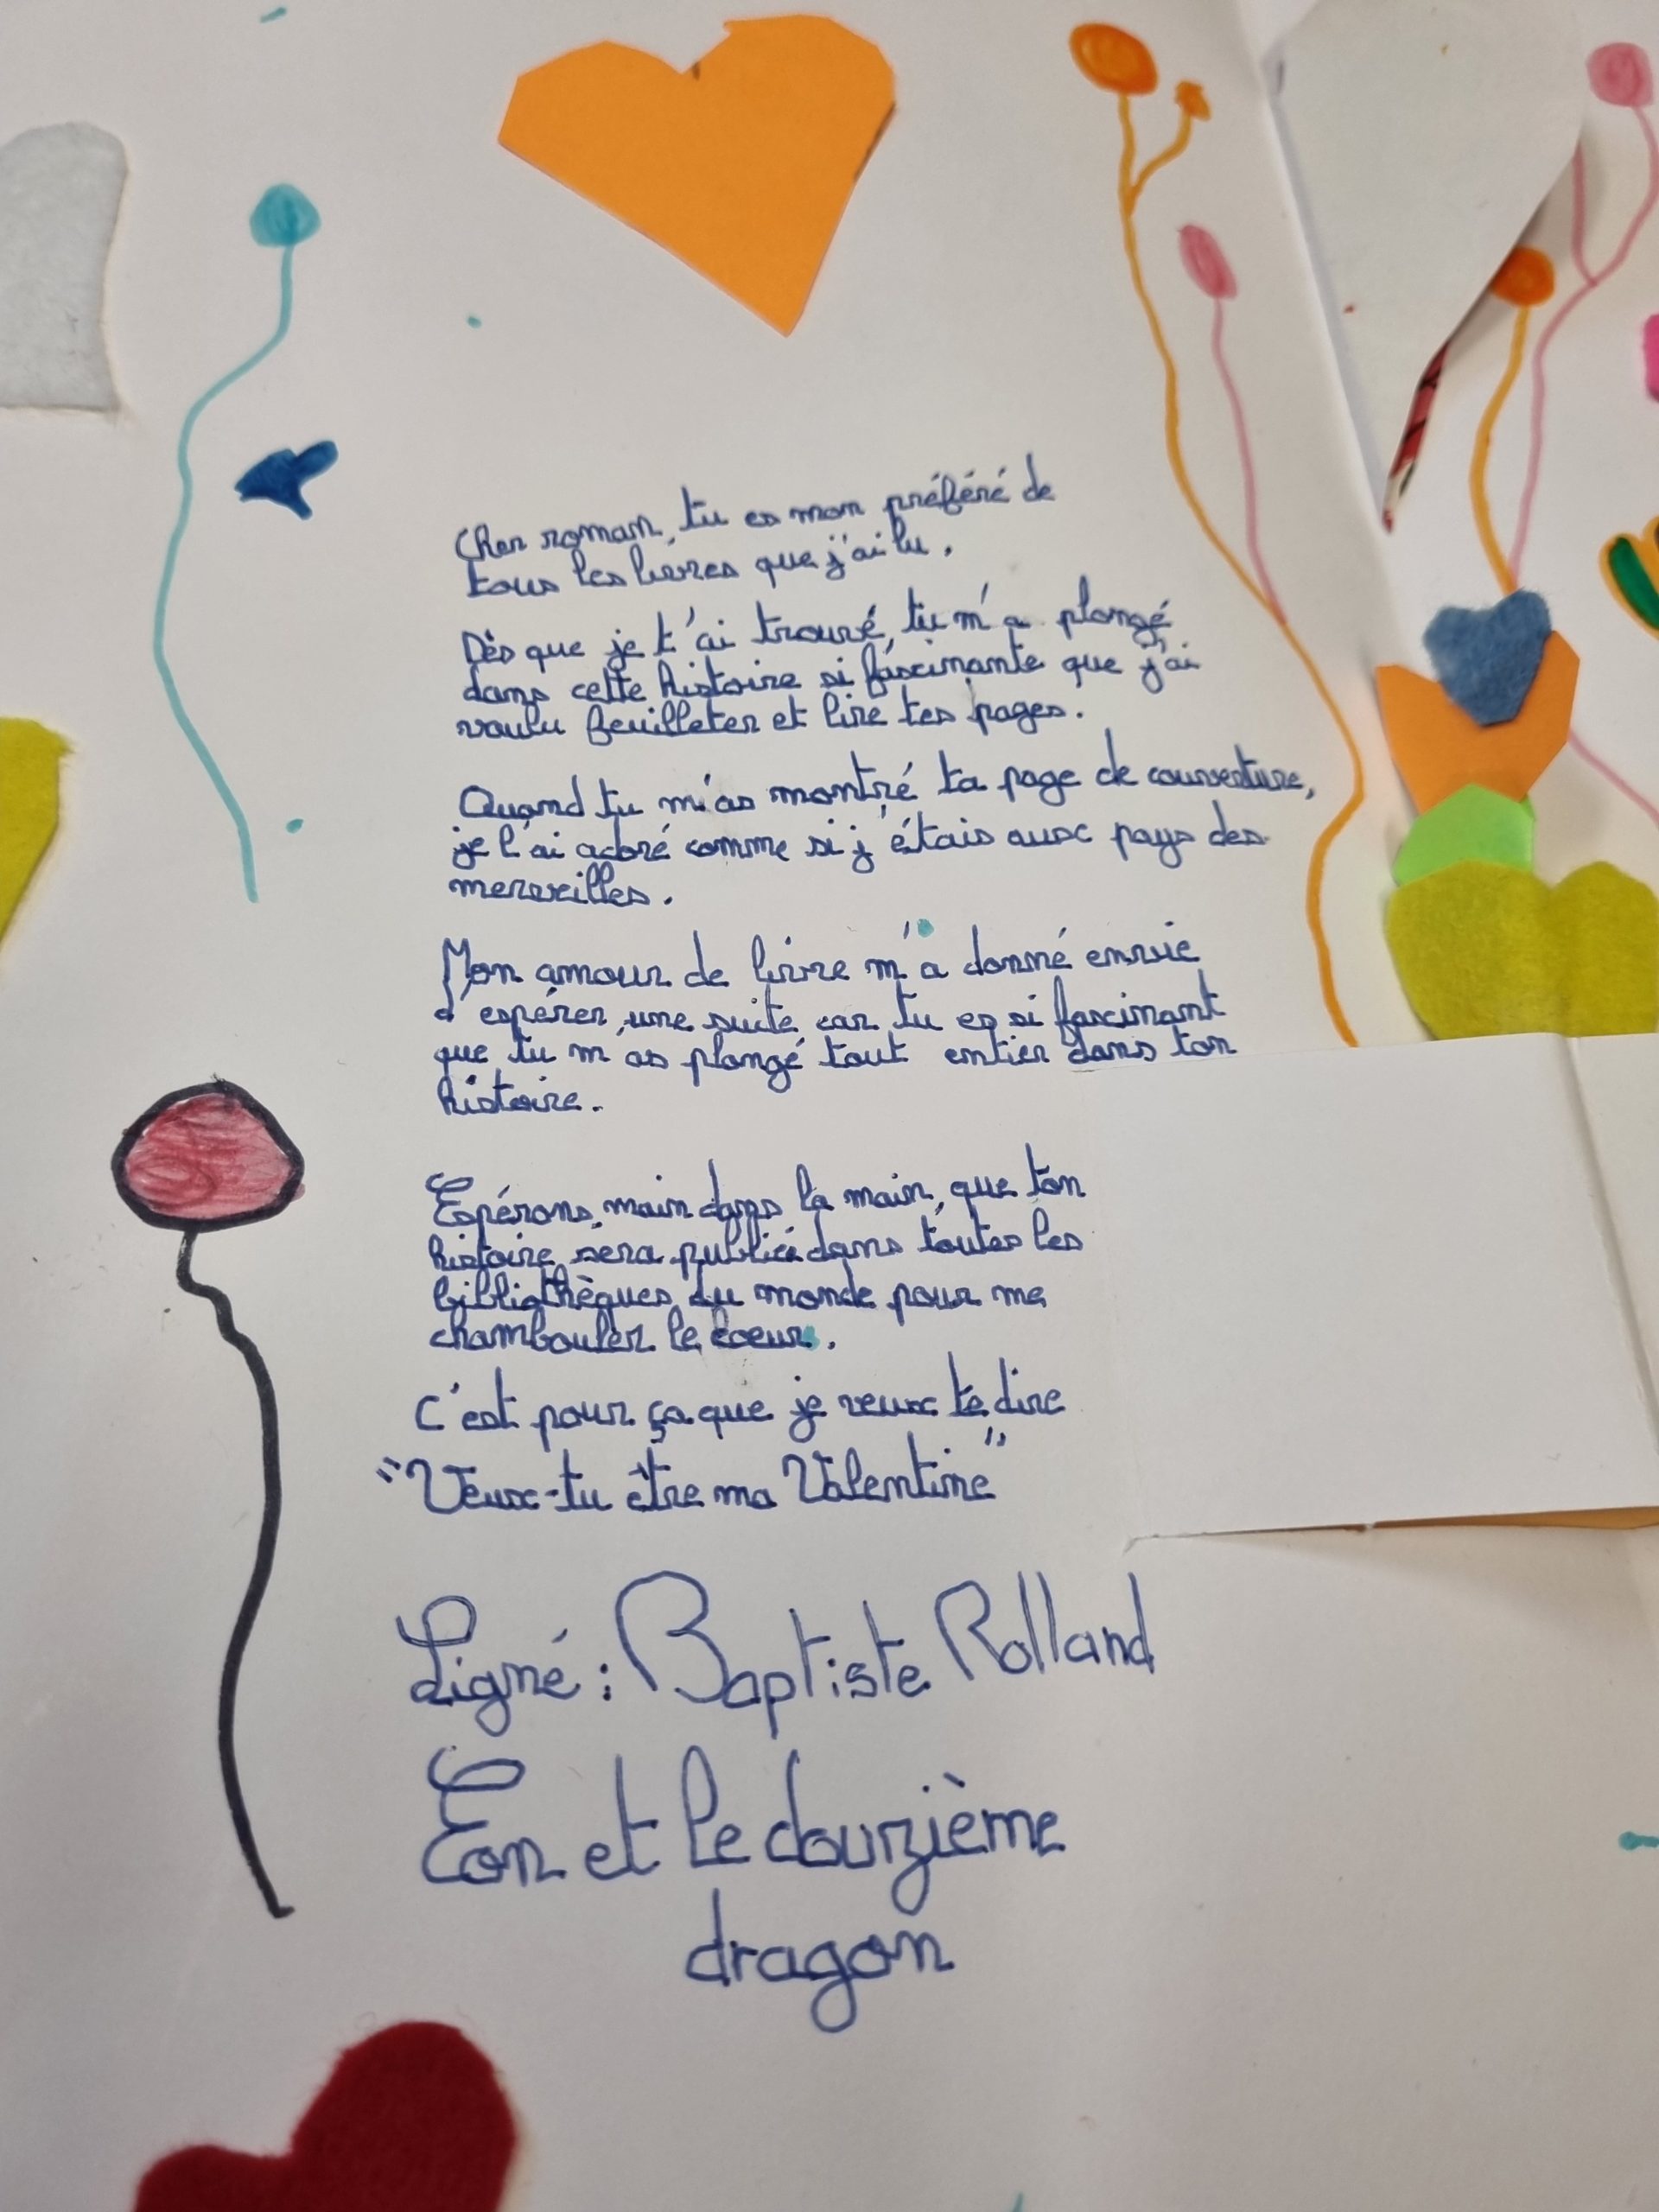 Cher roman, tu es mon préféré de
tous les livres que j'ai lu.
Dès que je t'ai trouvé, tu m'a plongé
dans cette histoire si fascinante que j'ai
voulu feuilleter et lire tes pages.
Quand tu m'as montré ta page de couverture,
je l'ai adoré comme si j'étais aux pays des
merveilles.
Mon amour de livre m'a donné envie
d'espérer une suite car tu es si fascinant
que tu m'as plongé tout entier dans ton
histoire.
Espérons, main dans la main, que ton
histoire sera publiée dans toutes les
bibliothèques du monde pour me
chambouler le coeur.
C'est pour ça que je veux te dire
"Veux-tu être ma Valentine"
Signé : Baptiste Rolland
Eon et le douzième
dragon